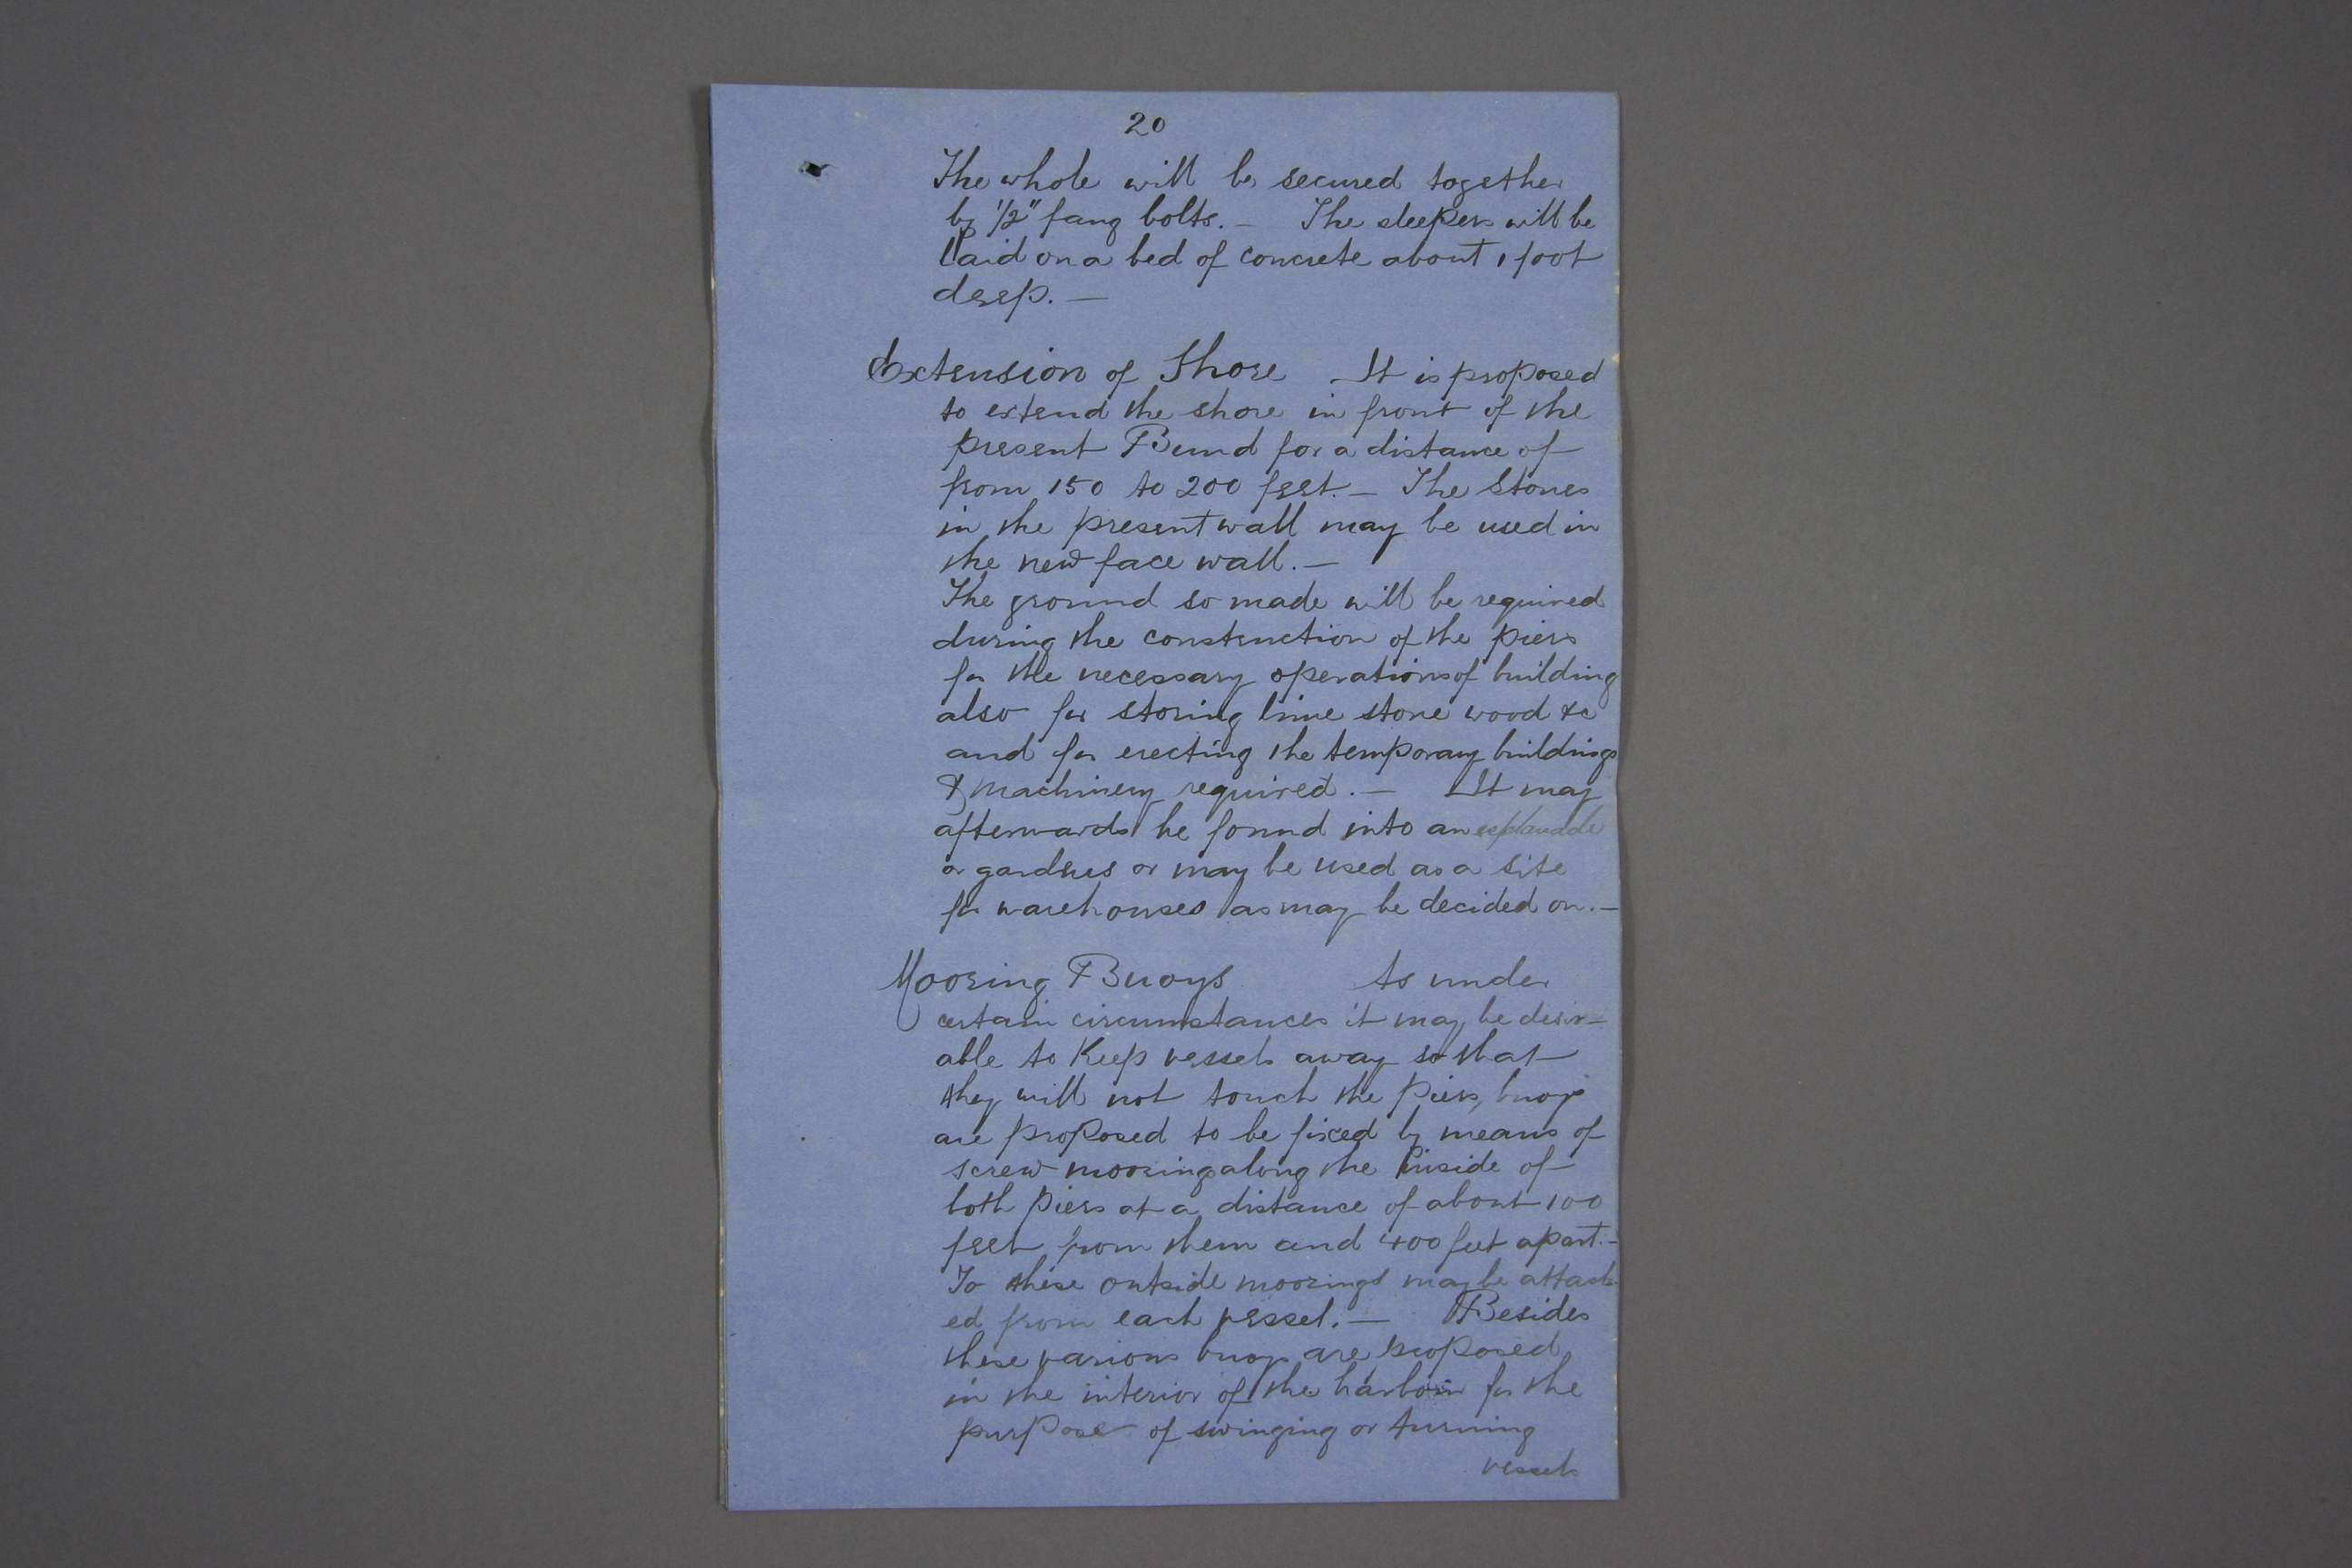 20
The whole will be secured together
by 1/2" fang bolts. — The sleepers will be
laid on a bed of concrete about 1 foot
deep. —
Extension of Shore It is proposed
to extend the shore in front of the
present Bund for a distance of
from 150 to 200 feet. — The Stones
in the present wall may be used in
the new face wall. —
The ground so made will be required
during the construction of the piers
for the necessary operations of building
also for storing lime stone wood &c
and for erecting the temporary buildings
& machinery required. — It may
afterwards be found into an esplanade
or gardens or may be used as a site
for warehouses as may be decided on. —
Mooring Buoys As under
certain circumstances it may be desir-
able to Keep vessels away so that
they will not touch the Piers, buoys
are proposed to be fixed by means of
screw moorings along the inside of
both piers at a distance of about 100
feet from them and 400 feet apart. —
To these outside moorings may be attach-
ed from each vessel. — Besides
these various buoys are proposed
in the interior of the harbour for the
purpose of swinging or turning
vessels